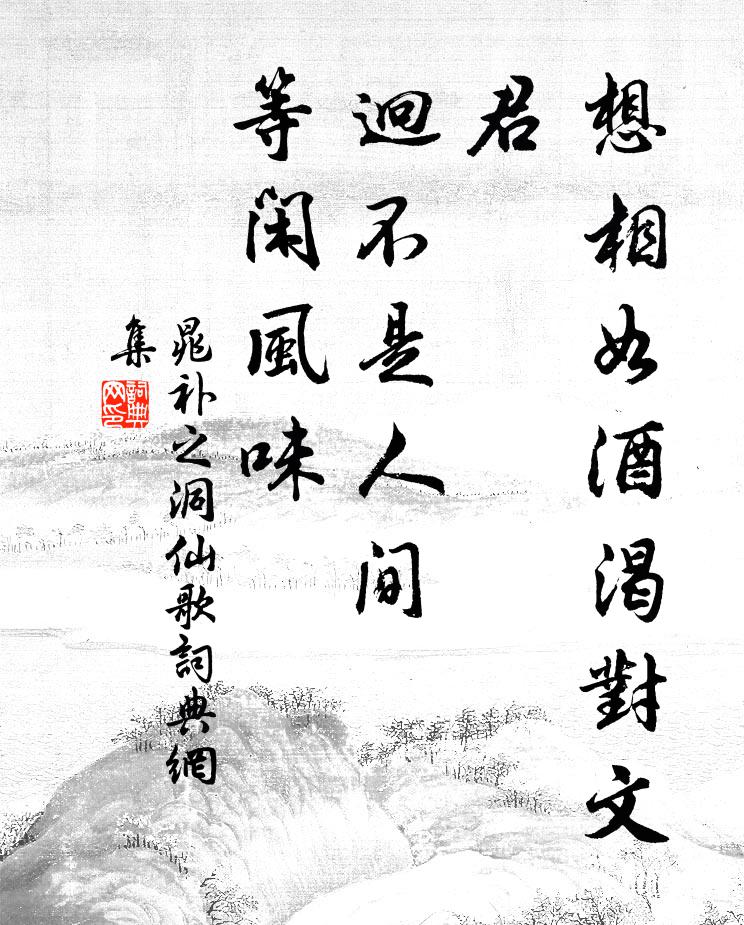 想相如酒渴對文
君
迥不是人间
等閑風味
晁补之洞仙歌詞典網
集
詞典
网印